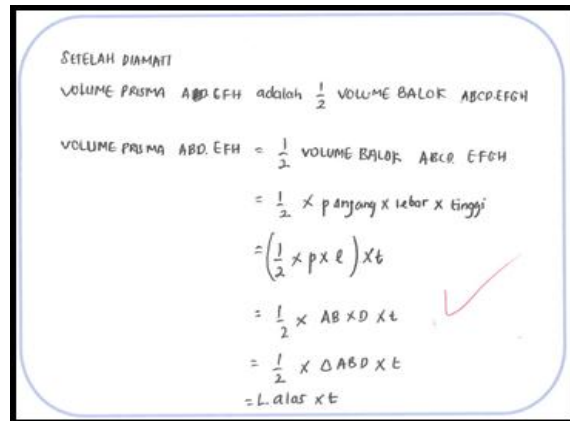 SETELAH DIAMATI
VOLUME PRISMA ABD EFH adalah 1/2 VOLUME BALOK ABCD.EFGH
VOLUME PRISMA ABD. EFH = 1/2 VOLUME BALOK ABCD. EFGH
= 1/2 × panjang × lebar × tinggi
= (1/2 × p × l) × t
= 1/2 × AB × D × t
= 1/2 × Δ ABD × t
= L. alas × t